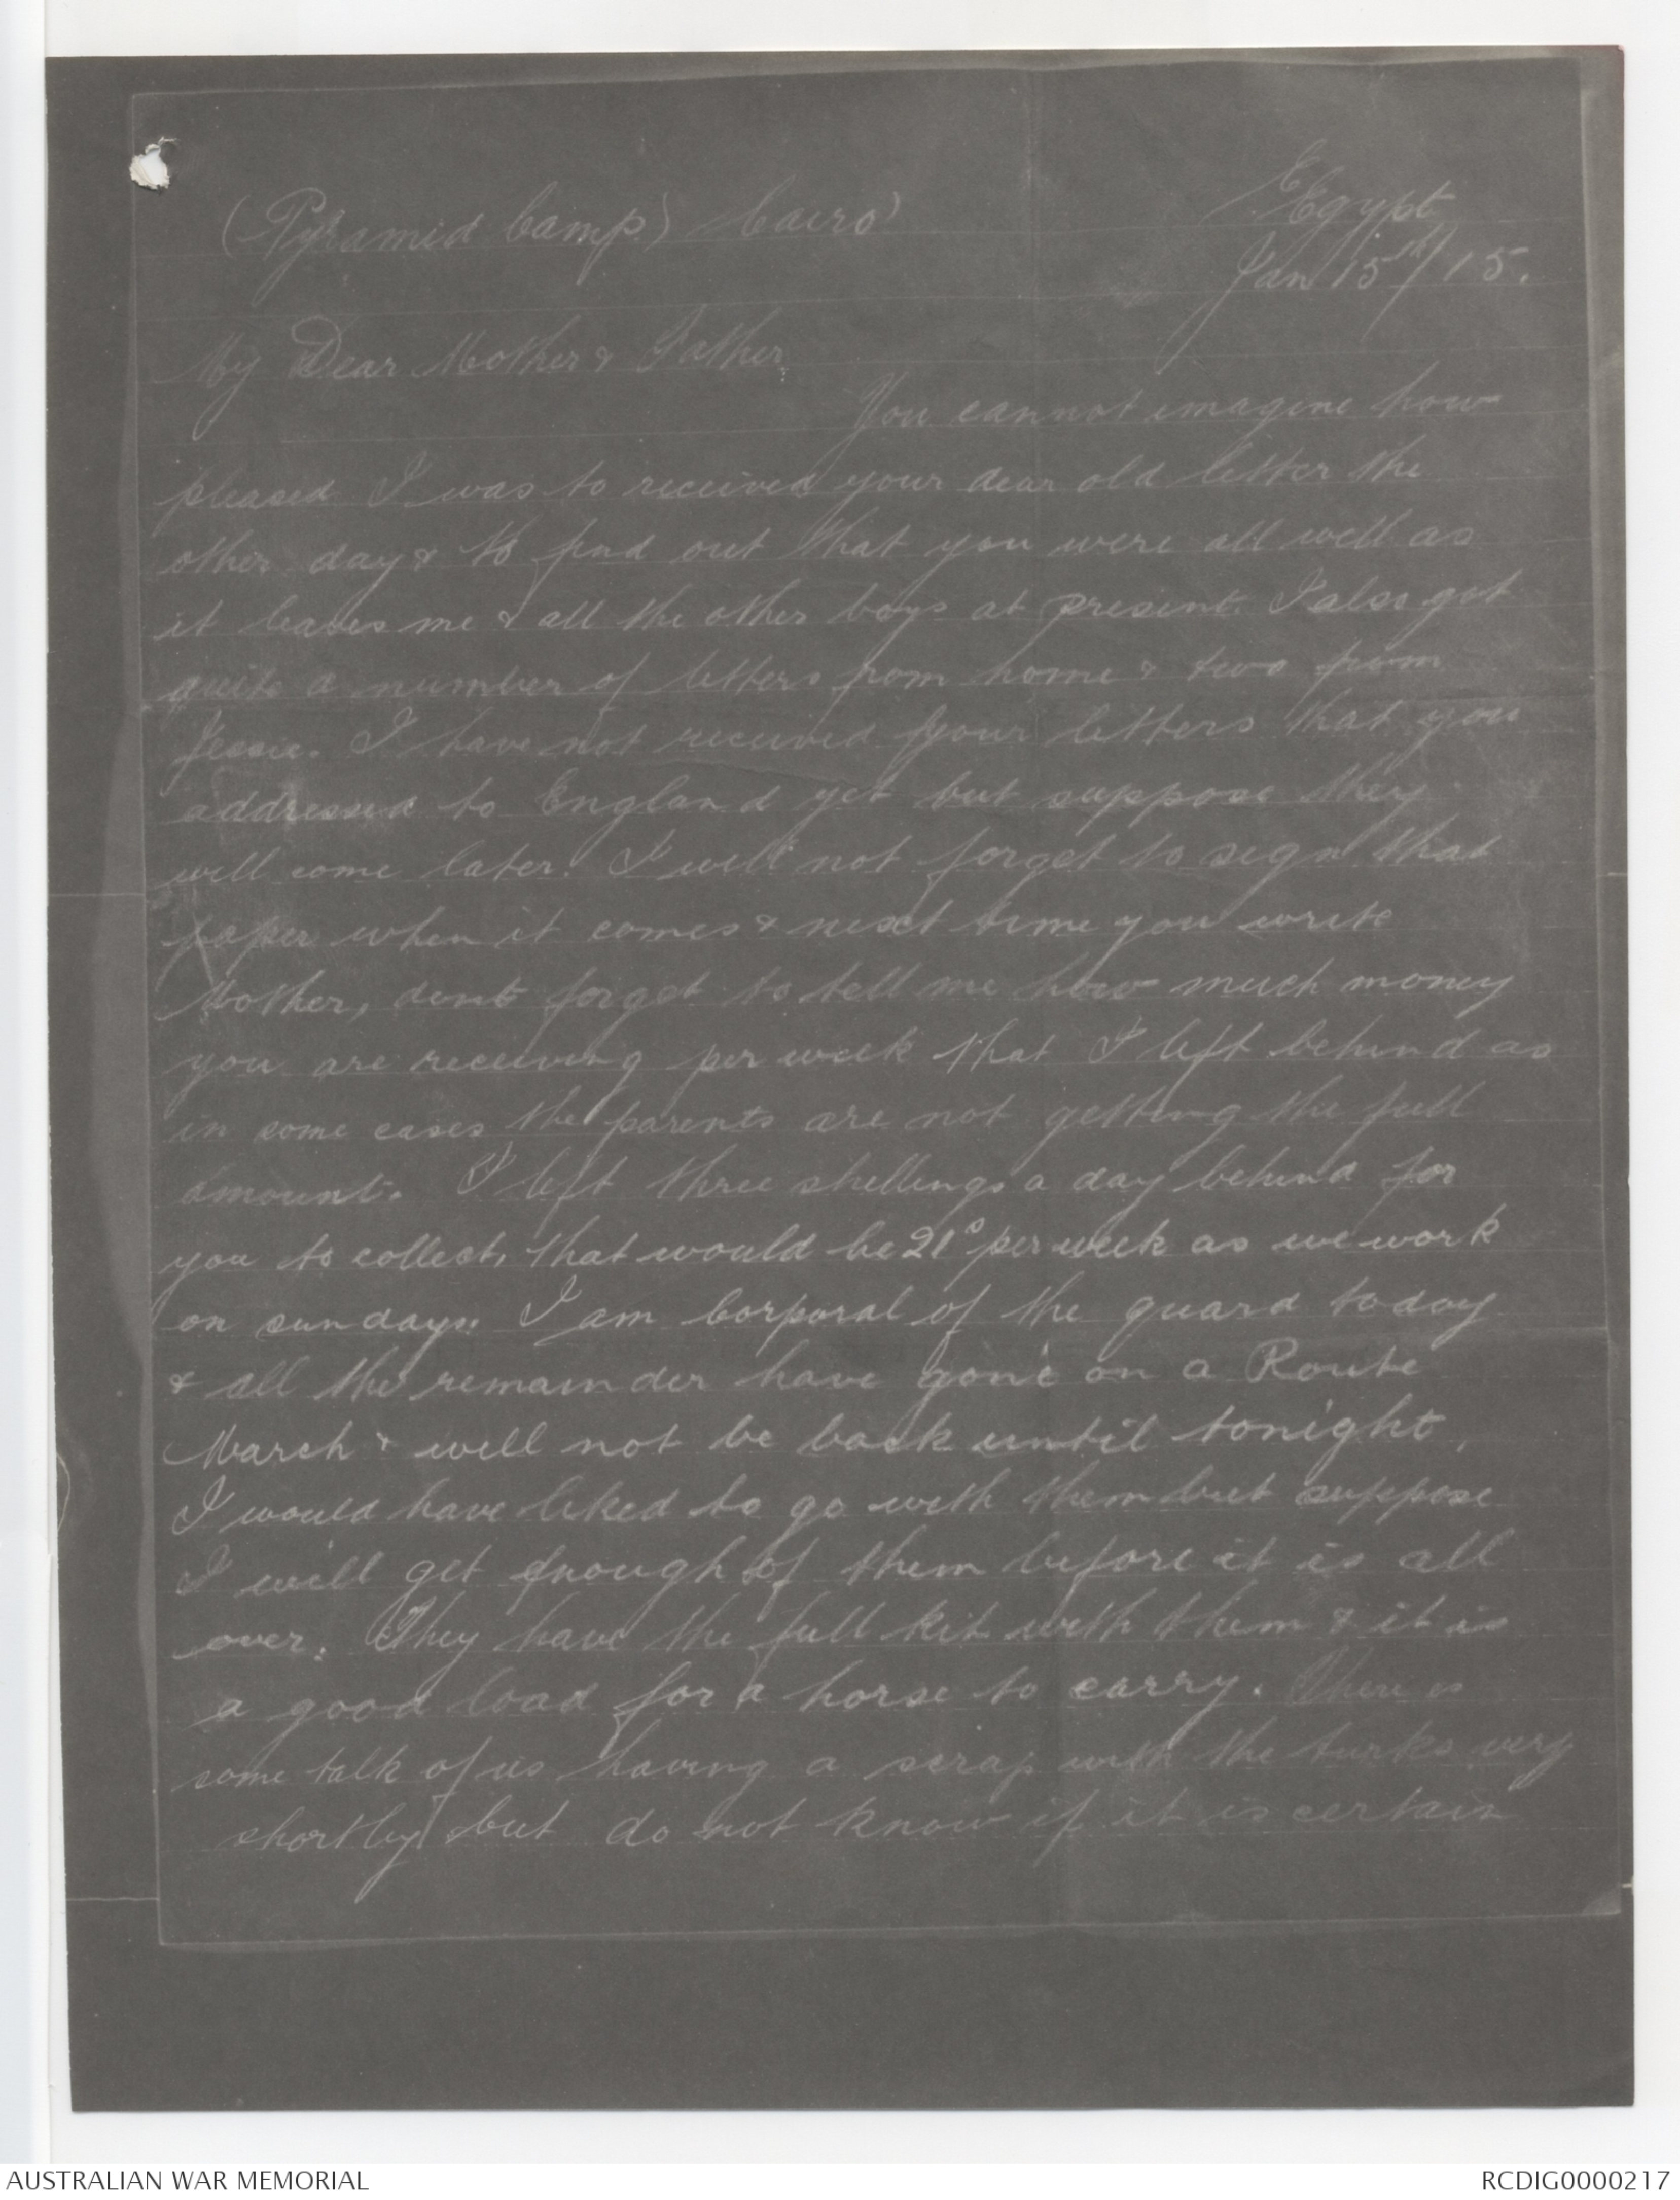 (Pyramid Camp) Cairo
Egypt
Jan 15th/15.
My Dear Mother & Father
You cannot imagine how
pleased I was to received your dear old letter the
other day & to find out that you were all well as
it leaves me & all the other boys at present. I also got
quite a number of letters from home & two from
Jessie. I have not received your letters that you
addressed to England yet but suppose they
will come later. I will not forget to sign that
paper when it comes & next time you write
Mother, dont forget to tell me how much money
you are receiving per week that I left behind as
in some cases the parents are not getting the full
amount. I left three shillings a day behind for
you to collect, that would be 21s per week as we work
on sundays. I am Corporal of the guard today
& all the remainder have gone on a Route
March & will not be back until tonight.
I would have liked to go with them but suppose
I will get enough of them before it is all
over. They have the full kit with them & it is
a good load for a horse to carry. There is
some talk of us having a scrap with the turks very
shortly but do not know if it is certain
AUSTRALIAN WAR MEMORIAL
RCDIG0000217